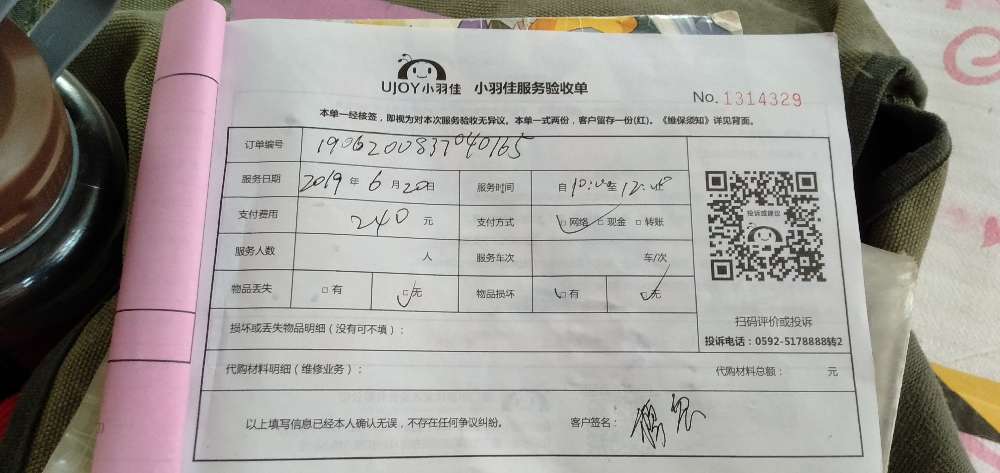 UJOY小羽佳 小羽佳服务验收单
No. 1314329
本单一经核签，即视为对本次服务验收无异议。本单一式两份，客户留存一份(红)。《维保须知》详见背面。
订单编号 1906200837040165
服务日期 2019 年 6 月 20 日 服务时间 自 10:00 至 12:00
支付费用 240 元 支付方式 □网络 □现金 □转账
服务人数 人 服务车次 车/次
物品丢失 □有 □无 物品损坏 □有 □无
损坏或丢失物品明细（没有可不填）：
代购材料明细（维修业务）： 代购材料总额： 元
以上填写信息已经本人确认无误，不存在任何争议纠纷。 客户签名：
投诉或建议
扫码评价或投诉
投诉电话：0592-5178888转2